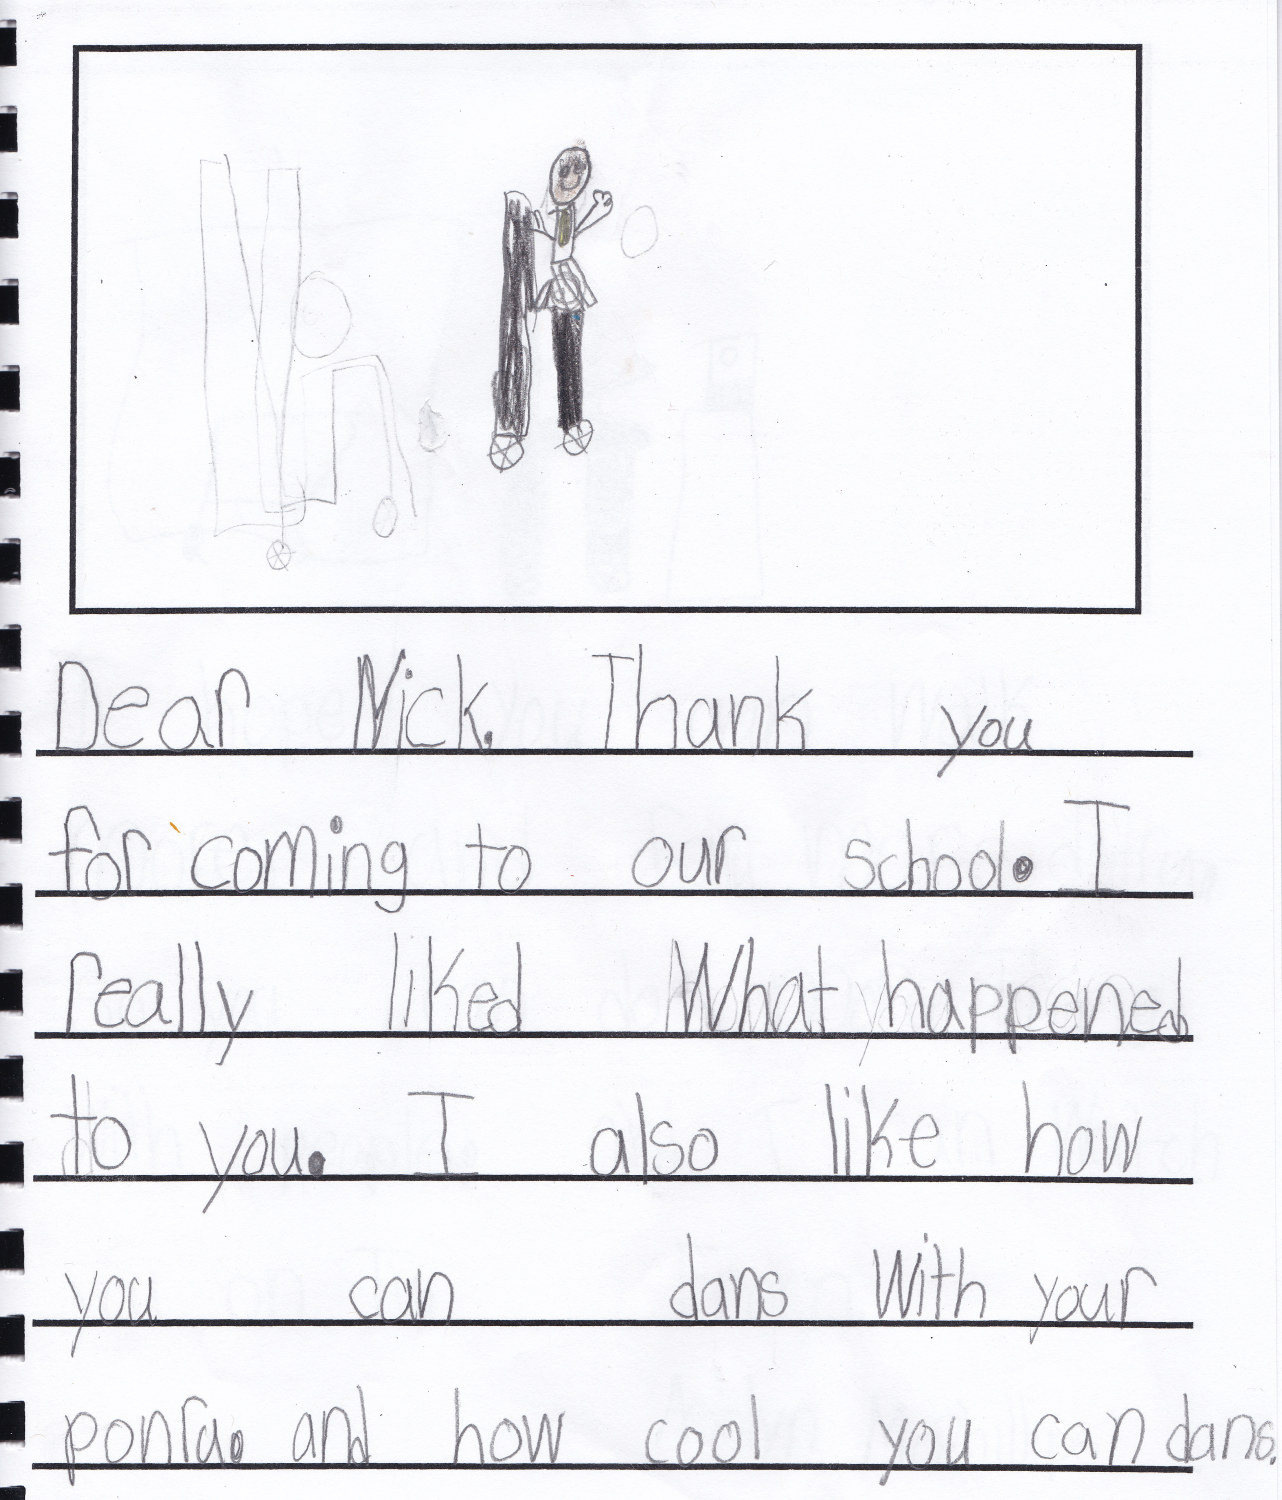 Dear Nick. Thank you
for coming to our school. I
really liked What happened
to you. I also like how
you can dans With your
ponra. and how cool you can dans.